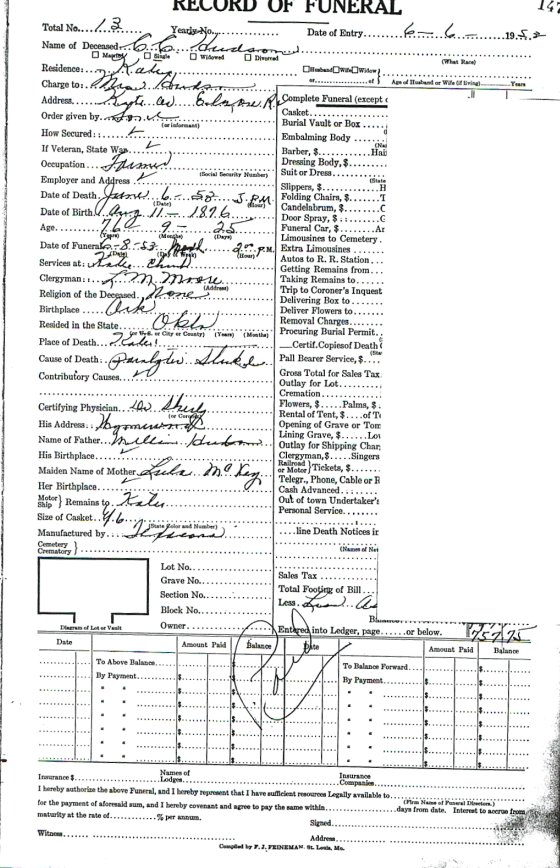 RECORD OF FUNERAL 147
Total No. 13 Yearly No. Date of Entry 6 - 6 - 1952
Name of Deceased C C Hudson
Married Single Widowed Divorced (What Race)
Residence: Husband Wife Widow or of Age of Husband or Wife (if living) Years
Charge to: Mrs Hudson
Address
Order given by Sons
(or informant)
How Secured:
If Veteran, State War
Occupation Farmer
(Social Security Number)
Employer and Address
Date of Death June 6 - 53 5 P.M
(Hour)
Date of Birth Aug 11 - 1876
Age 76 - 9 - 25
(Years) (Months) (Days)
Date of Funeral 6-8-53 2:00 P.M.
(Date) (Day of Week) (Hour)
Services at: Church
Clergyman: L. M. Moore
(Address)
Religion of the Deceased None
Birthplace Ark
Resided in the State Okla
(or U. S. or City or County) (Years) (Months)
Place of Death
Cause of Death: Paralytic Stroke
Contributory Causes
Certifying Physician Dr
(or Coroner)
His Address
Name of Father William Hudson
His Birthplace
Maiden Name of Mother Lula McKey
Her Birthplace
Motor Ship } Remains to
Size of Casket
(State Color and Number)
Manufactured by
Cemetery Crematory }
Lot No.
Grave No.
Section No.
Block No.
Owner
Diagram of Lot or Vault
Complete Funeral (except
Casket
Burial Vault or Box
Embalming Body
Barber, $ Hair
Dressing Body, $
Suit or Dress
(State
Slippers, $ H
Folding Chairs, $ T
Candelabrum, $ C
Door Spray, $ G
Funeral Car, $ Ar
Limousines to Cemetery
Extra Limousines
Autos to R. R. Station
Getting Remains from
Taking Remains to
Trip to Coroner's Inquest
Delivering Box to
Deliver Flowers to
Removal Charges
Procuring Burial Permit
Certif. Copies of Death
(Sta
Pall Bearer Service, $
Gross Total for Sales Tax
Outlay for Lot
Cremation
Flowers, $ Palms, $
Rental of Tent, $ of T
Opening of Grave or Tom
Lining Grave, $ Lo
Outlay for Shipping Char
Clergyman, $ Singers
Railroad or Motor } Tickets, $
Telegr., Phone, Cable or R
Cash Advanced
Out of town Undertaker's
Personal Service
line Death Notices in
(Names of Ne
Sales Tax
Total Footing of Bill
Less
Bala
Entered into Ledger, page or below. 757 75
Date Amount Paid Balance Date Amount Paid Balance
To Above Balance $ To Balance Forward $
By Payment $ By Payment $
Paid
Insurance $ Names of Lodges Insurance Companies
I hereby authorize the above Funeral, and I hereby represent that I have sufficient resources Legally available to
(Firm Name of Funeral Directors.)
for the payment of aforesaid sum, and I hereby covenant and agree to pay the same within days from date. Interest to accrue from
maturity at the rate of % per annum. Signed
Witness Address
Compiled by F. J. FEINEMAN. St. Louis, Mo.